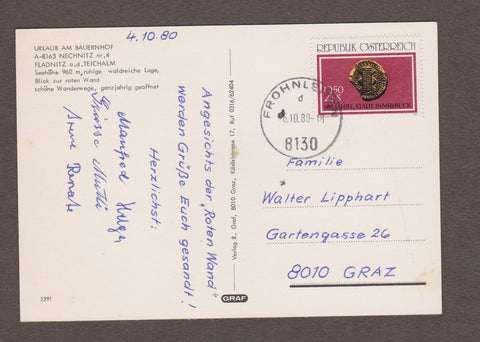 4.10.80
URLAUB AM BAUERNHOF
A-8163 NECHNITZ nr.4
FLADNITZ a.d. TEICHALM
Seehöhe 960 m, ruhige waldreiche Lage,
Blick zur roten Wand
schöne Wanderwege, ganzjährig geöffnet
Angesichts der „Roten Wand"
werden Grüße Euch gesandt!
Herzlichst:
Manfred
Grüsse Mutti
Anne Renate
5291
Verlag R. Graf, 8010 Graz, 17, Ruf 0316/62404
GRAF
REPUBLIK ÖSTERREICH
2.50
S
800 JAHRE STADT INNSBRUCK
FROHNLEI
d
8130
Familie
Walter Lipphart
Gartengasse 26
8010 GRAZ